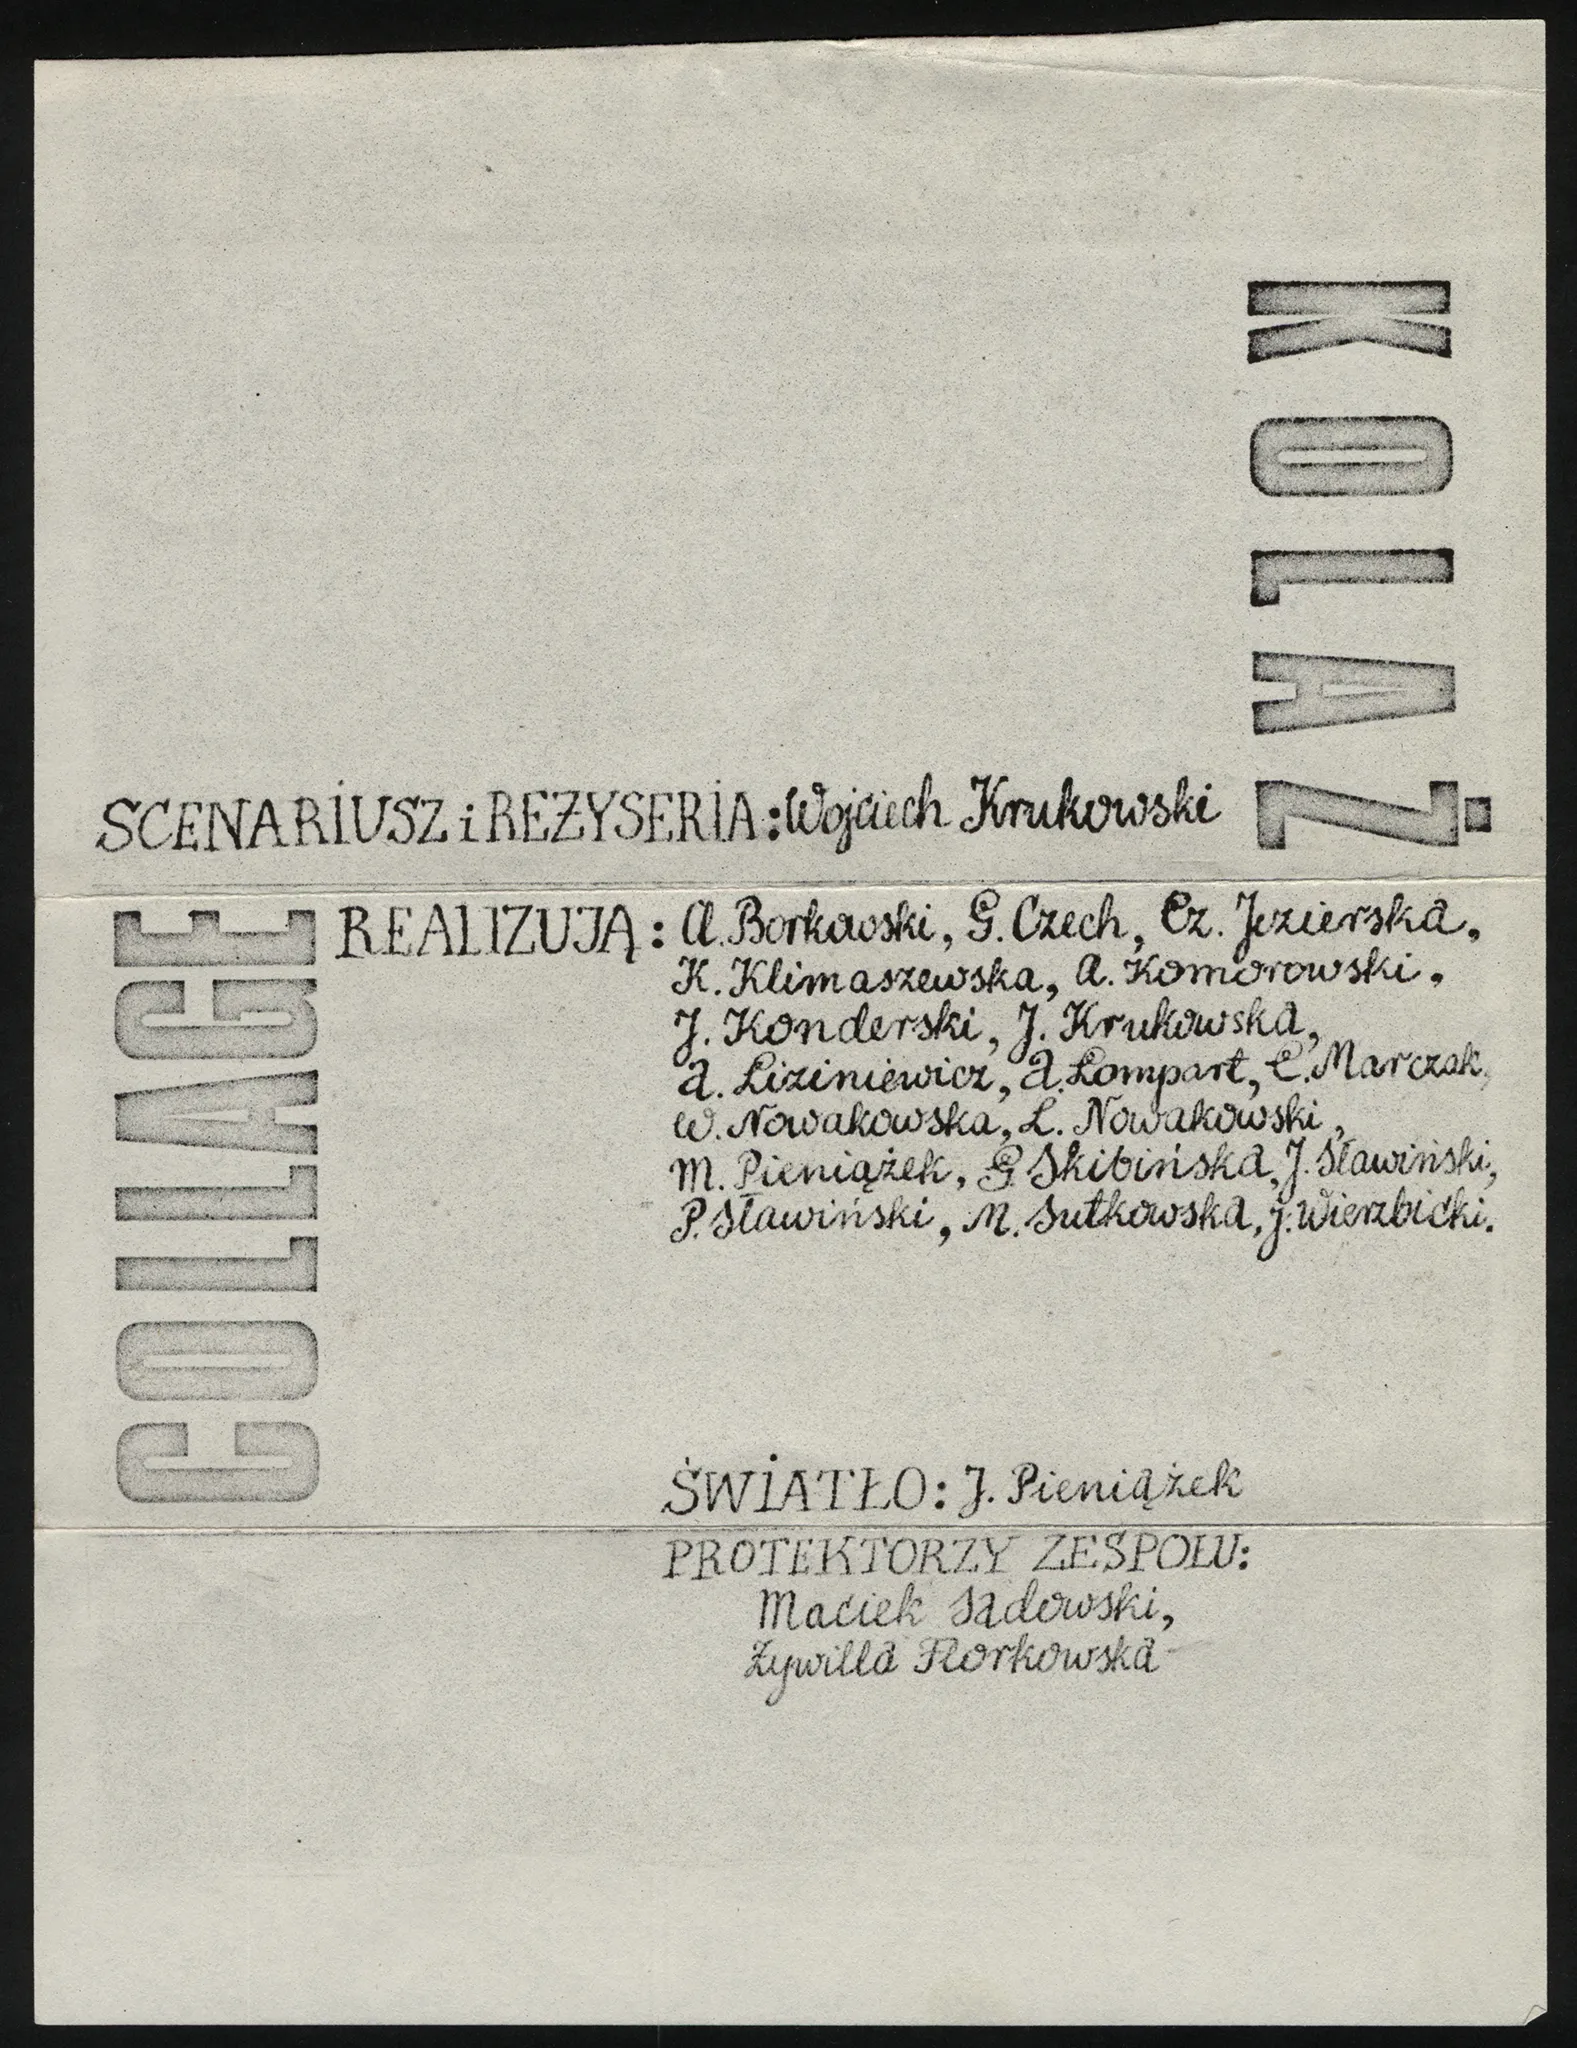 KOLAŻ
SCENARIUSZ i REŻYSERIA: Wojciech Krukowski
COLLAGE
REALIZUJĄ: A. Borkowski, G. Czech, Cz. Jezierska,
K. Klimaszewska, A. Komorowski,
J. Konderski, J. Krukowska,
A. Liziniewicz, A. Lompart, C. Marczak,
W. Nowakowska, L. Nowakowski,
M. Pieniążek, G Skibińska, J. Sławiński,
P. Sławiński, M. Sutkowska, J. Wierzbicki.
ŚWIATŁO: J. Pieniążek
PROTEKTORZY ZESPOŁU:
Maciek Sadowski,
Żywilla Florkowska